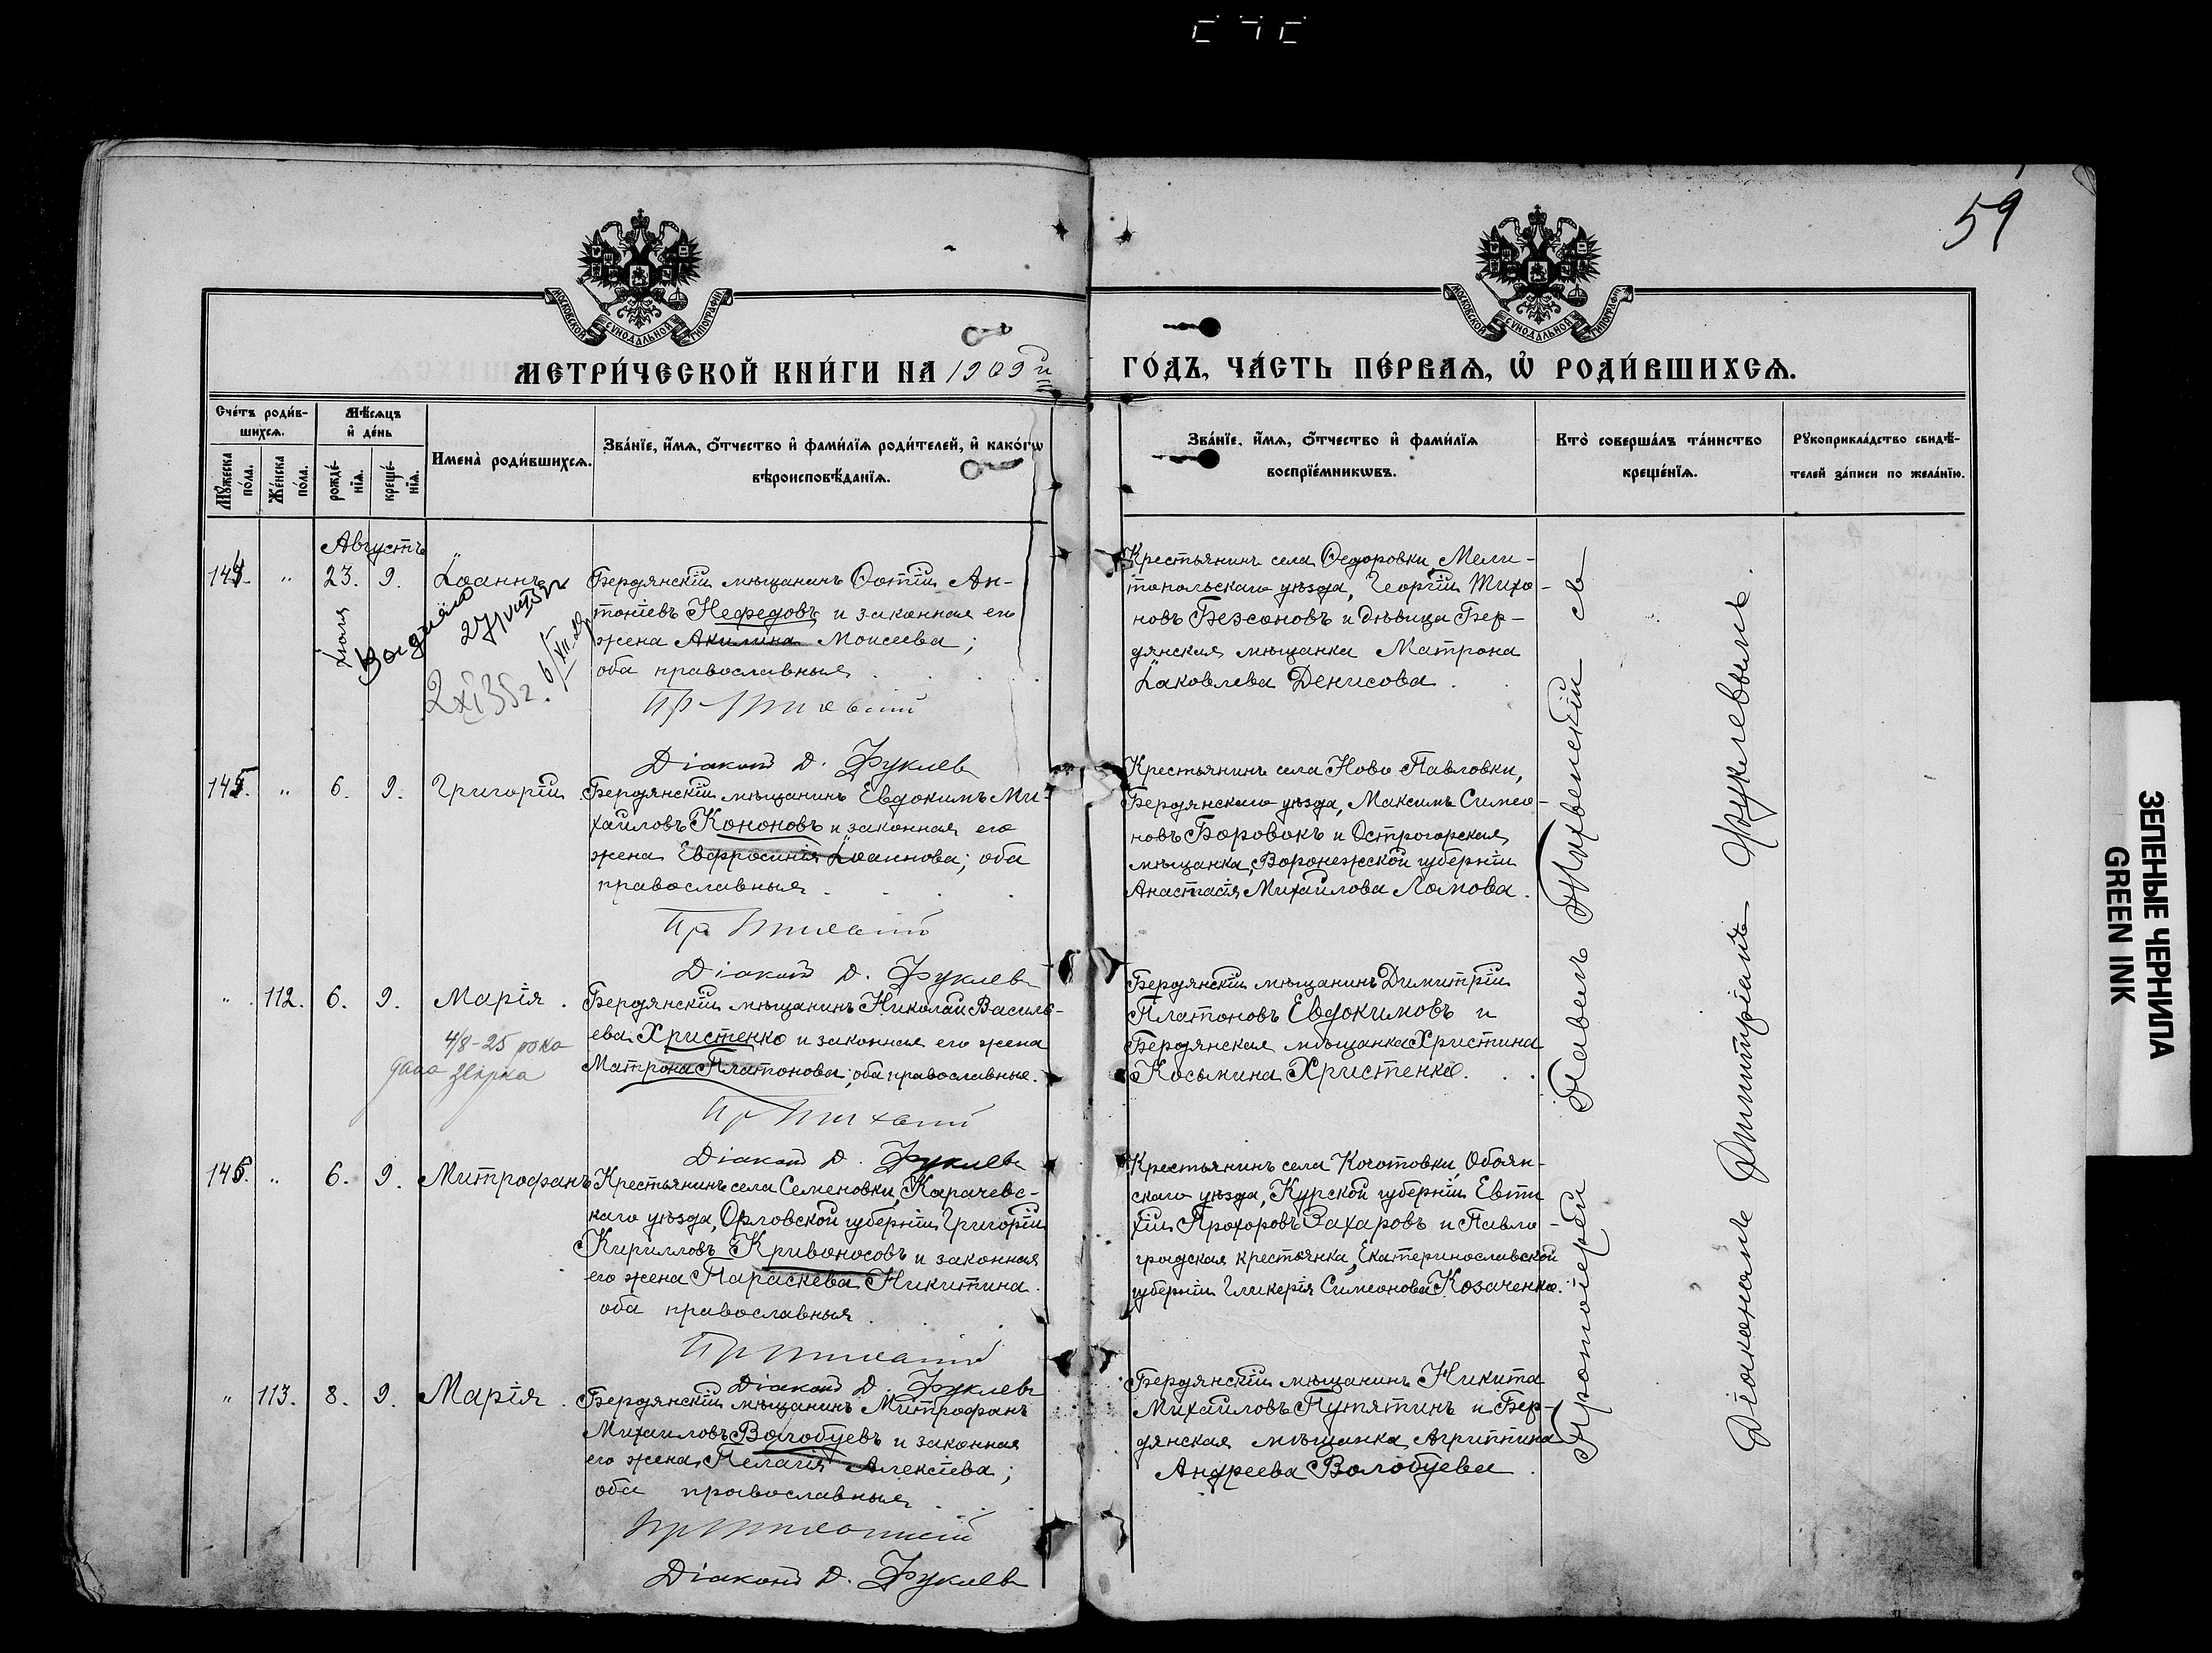 59
МОСКОВСКОЙ СУНОДАЛЬНОЙ ТИПОГРАФІИ
МОСКОВСКОЙ СУНОДАЛЬНОЙ ТИПОГРАФІИ
МЕТРИ́ЧЕСКОЙ КНИ́ГИ НА 1909й
ГО́ДЪ, ЧА́СТЬ ПЕ́РВАѦ, Ѿ РОДИ́ВШИХСѦ.
Сче́тъ роди́в-
шихсѧ.
Мꙋ́жеска по́ла.
Же́нска по́ла.
Мѣ́сѧцъ
и҆ де́нь
рожде́-
нїѧ.
креще́-
нїѧ.
Имена̀ роди́вшихсѧ.
Зва́нїе, и҆́мѧ, ѻ҆́тчество и҆ фами́лїѧ роди́телей, и҆ како́гѡ
вѣроисповѣ́данїѧ.
Зва́нїе, и҆́мѧ, ѻ҆́тчество и҆ фами́лїѧ
воспрїе́мникѡвъ.
Кто̀ соверша́лъ та́инство
креще́нїѧ.
Рꙋкоприкла́дство свидѣ́-
телей за́писи по жела́нїю.
Августъ
144. " 23. 9. Іоаннъ
Іюля
2 XI 35 г.
6/XII
Бердянскій мѣщанинъ Ѳотій Ан-
тоніевъ Нефедовъ и законная его
жена Акилина Моисеева;
оба православные.
Діаконъ Д. Фукалевъ
Крестьянинъ села Ѳедоровки, Мели-
топольскаго уѣзда, Георгій Тихо-
новъ Безсоновъ и дѣвица Бер-
дянская мѣщанка Матрона
Іаковлева Денисова.
145. " 6. 9. Григорій
Бердянскій мѣщанинъ Евдокимъ Ми-
хайловъ Кононовъ и законная его
жена Евфросинія Іоаннова; оба
православные.
Діаконъ Д. Фукалевъ
Крестьянинъ села Ново Павловки,
Бердянскаго уѣзда, Максимъ Симео-
новъ Боровокъ и Острогорская
мѣщанка, Воронежской губерніи
Анастасія Михайлова Ломова.
" 112. 6. 9. Марія.
4/8-25 року
Бердянскій мѣщанинъ Николай Василь-
евъ Христенко и законная его жена
Матрона Платонова; оба православные.
Діаконъ Д. Фукалевъ
Бердянскій мѣщанинъ Димитрій
Платоновъ Евдокимовъ и
Бердянская мѣщанка Христина
Косьмина Христенко.
146. " 6. 9. Митрофанъ
Крестьянинъ села Семеновки, Карачевс-
каго уѣзда, Орловской губерніи Григорій
Кирилловъ Кривоносовъ и законная
его жена Параскева Никитина.
оба православныя.
Діаконъ Д. Фукалевъ
Крестьянинъ села Кочотовки, Обоян-
скаго уѣзда, Курской губерніи Евти
хій Прохоровъ Захаровъ и Павло-
градская крестьянка, Екатеринославской
губерніи Гликерія Симеонова Козаченко.
" 113. 8. 9. Марія.
Бердянскій мѣщанинъ Митрофанъ
Михаиловъ Волобуевъ и законная
его жена Пелагія Алексіева;
оба православные.
Діаконъ Д. Фукалевъ
Бердянскій мѣщанинъ Никита
Михайловъ Путятинъ и Бер-
дянская мѣщанка Агриппина
Андреева Волобуева.
Протоіерей Павелъ Тихвинскій съ
Діакономъ Димитріемъ
ЗЕЛЕНЫЕ ЧЕРНИЛА
GREEN INK